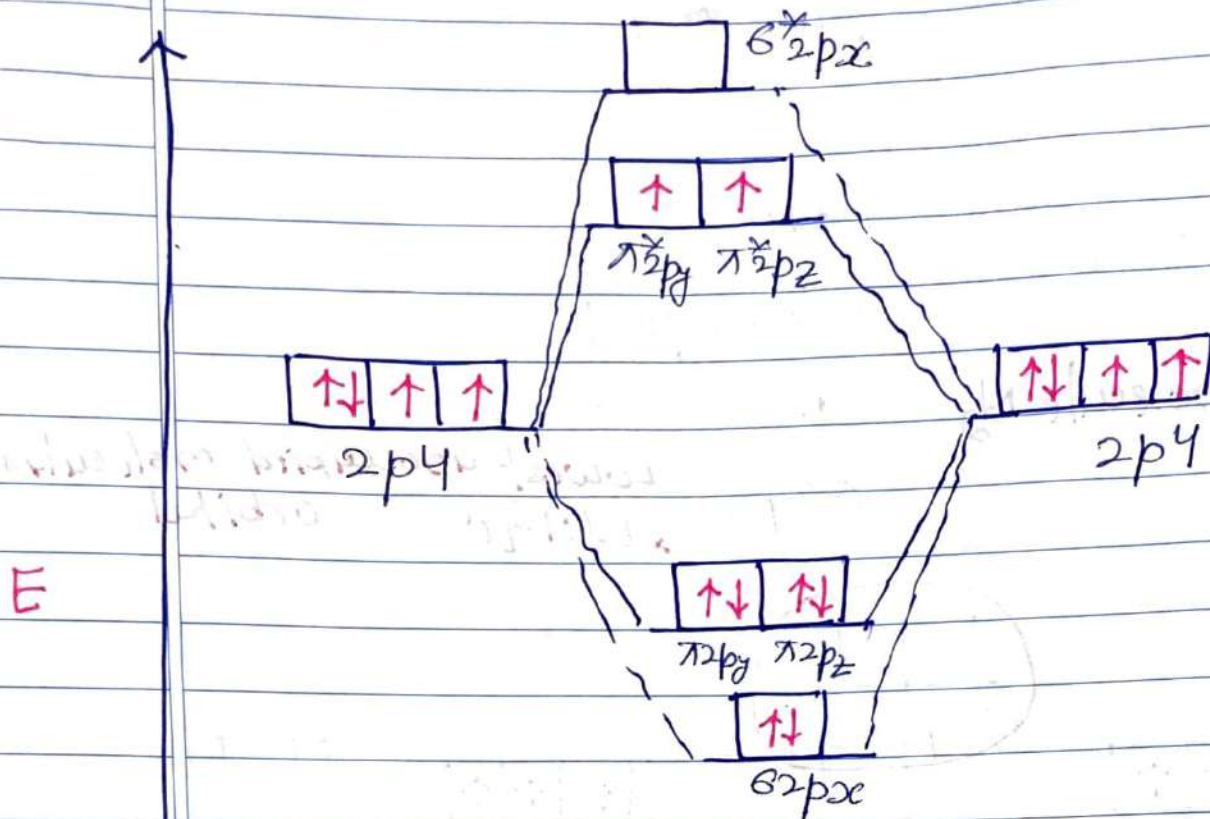 σ*2px
↑ ↑
π*2py π*2pz
↑↓ ↑ ↑
2p4
↑↓ ↑ ↑
2p4
E
↑↓ ↑↓
π2py π2pz
↑↓
σ2px